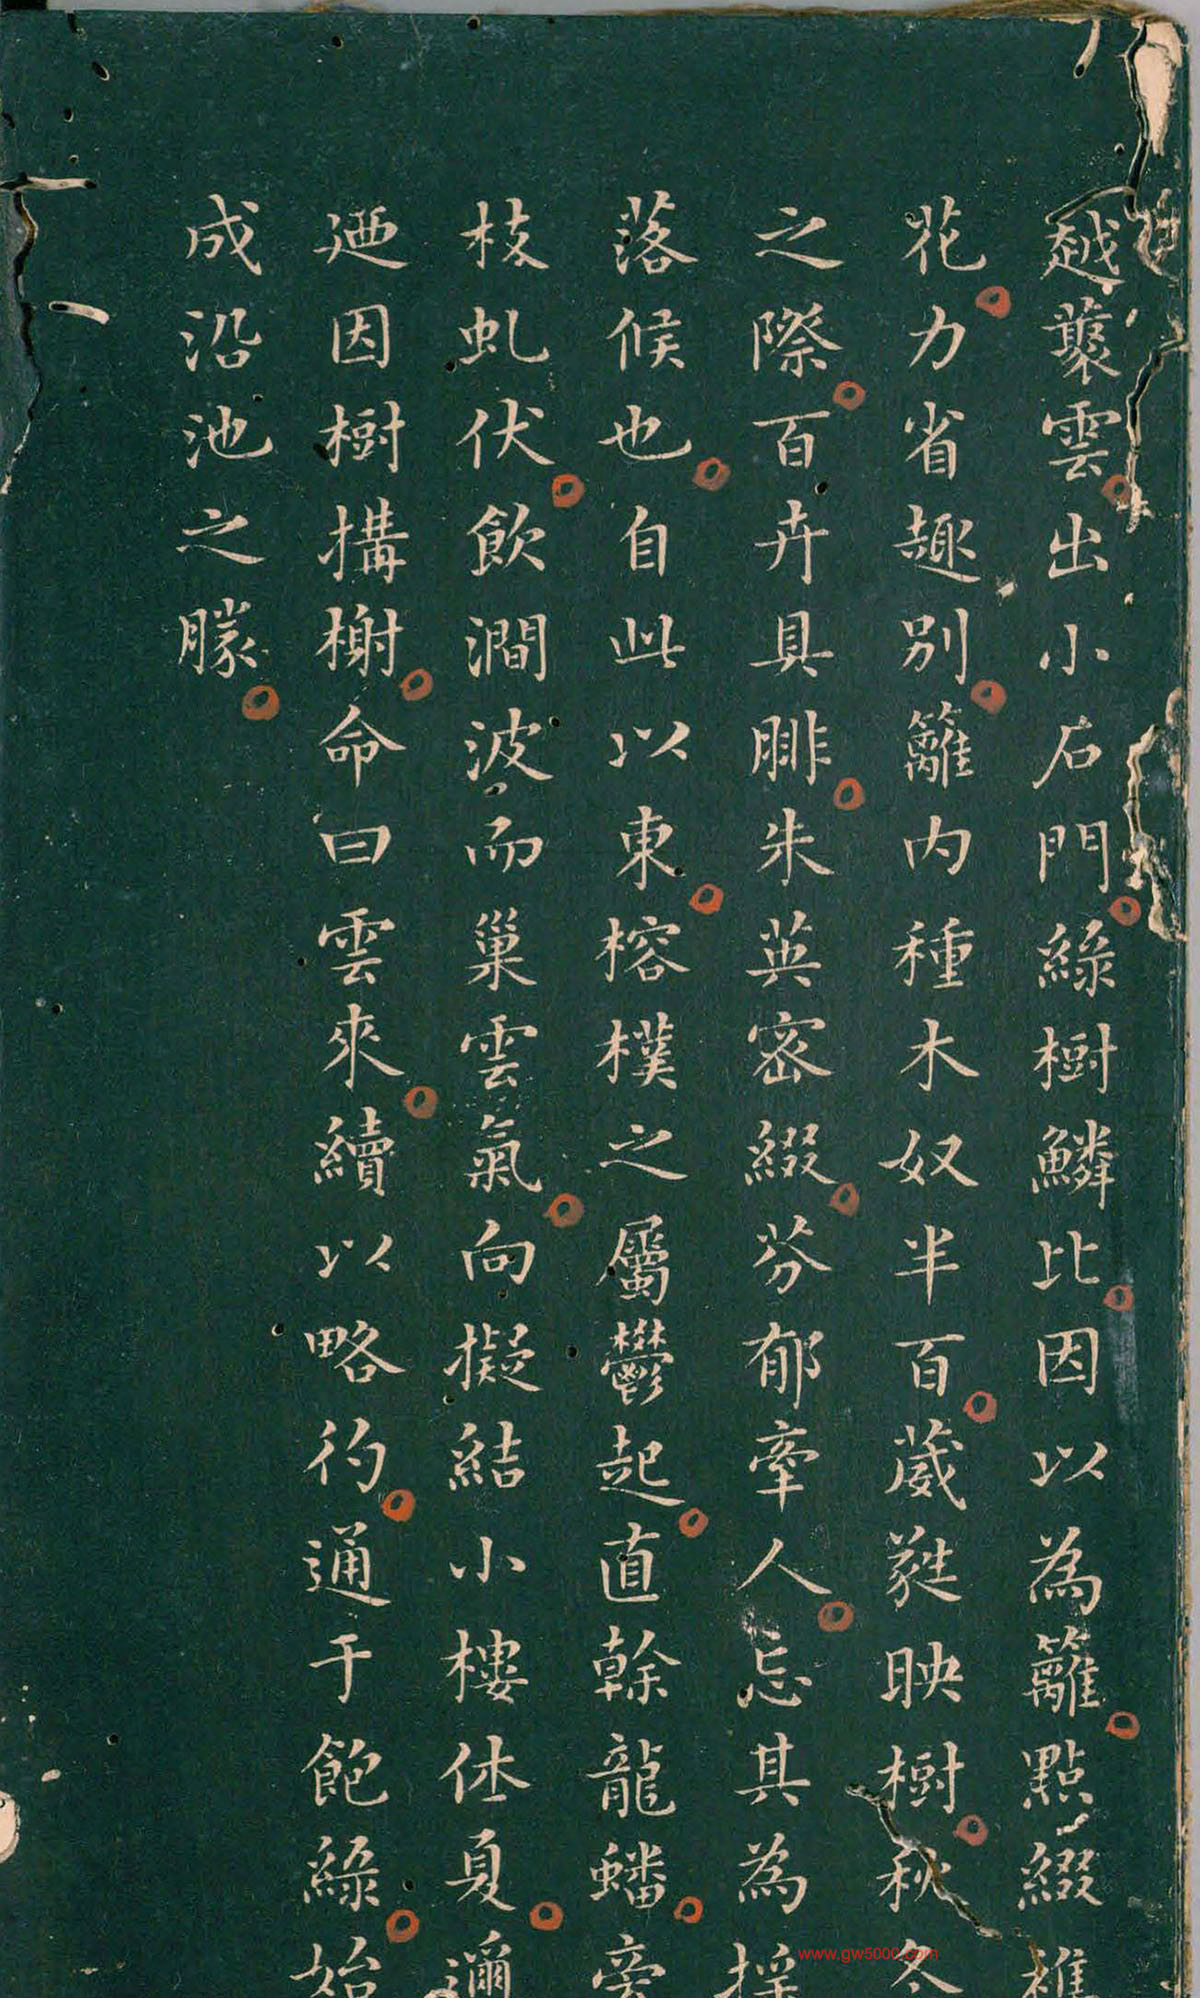 越蘩雲出小石門綠樹鱗比因以為籬點綴
花力省趣別籬内種木奴半百葳蕤映樹秋冬
之際百卉具腓朱英密綴芬郁牽人忘其為
落候也自此以東榕樸之屬鬱起直榦龍蟠
枝虬伏飲澗波而巢雲氣向擬結小樓休夏
迺因樹搆榭命曰雲來續以略彴通于飽綠始
成沿池之朦
www.gw5000.com